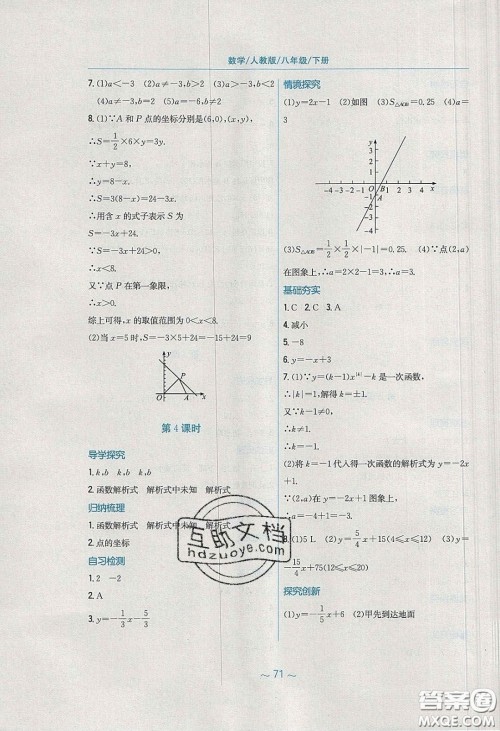 数学/人教版/八年级/下册
7.(1)a<-3 (2)a≠-3,b>2 (3)a>-3,b=2
(4)a≠-3,b=2 (5)a=-3,b<2
8.(1)∵A和P点的坐标分别是(6,0),(x,y),
∴S=1/2×6×y=3y.
∵x+y=8,
∴y=8-x.
∴S=3(8-x)=24-3x.
∴用含x的式子表示S为
S=-3x+24.
∴x<8.
又∵点P在第一象限,
∴x>0.
综上可得,x的取值范围为0<x<8.
(2)当x=5时,S=-3×5+24=-15+24=9
y
P
O
A
x
第4课时
导学探究
1.k,b k,b k,b
2.函数解析式 解析式中未知 解析式
归纳梳理
1.函数解析式 解析式中未知 解析式
2.点的坐标
自习检测
1.2 -2
2.A
3.y=-1/3x-5/3
情境探究
(1)y=2x-1 (2)如图 (3)S△AOB=0.25 (4)a=
3
y
4
3
2
1
-4 -3 -2 -1 O B 1 2 3 4 x
A
-2
-3
-4
(3)S△AOB=1/2×1/2×|-1|=0.25. (4)∵点(2,a)
在图象上,∴a=2×2-1=3.
基础夯实
1.C 2.C 3.A
4.减小
5.-8
6.y=-x+3
7.(1)∵y=(k-1)x|k|-k是一次函数,
∴|k|=1,解得k=±1.
又∵k-1≠0,
∴k≠1.
∴k=-1.
(2)将k=-1代入得一次函数的解析式为y=-2x
+1.
又∵(2,a)在y=-2x+1图象上,
∴a=-4+1=-3.
8.(1)5 L (2)y=5/4x+15(4≤x≤12)
y=-15/4x+75(12≤x≤20)
探究创新
(1)y=-1/5x+6 (2)甲先到达地面
互助文档
hdzuoye.com
~ 71 ~
答案圈
MXQE.COM